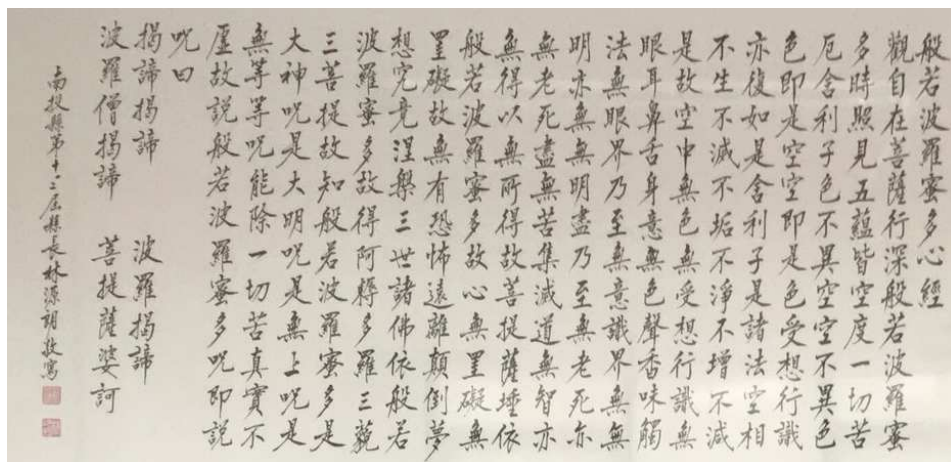 般若波羅蜜多心經
觀自在菩薩行深般若波羅蜜
多時照見五蘊皆空度一切苦
厄舍利子色不異空空不異色
色即是空空即是色受想行識
亦復如是舍利子是諸法空相
不生不滅不垢不淨不增不減
是故空中無色無受想行識無
眼耳鼻舌身意無色聲香味觸
法無眼界乃至無意識界無無
明亦無無明盡乃至無老死亦
無老死盡無苦集滅道無智亦
無得以無所得故菩提薩埵依
般若波羅蜜多故心無罣礙無
罣礙故無有恐怖遠離顛倒夢
想究竟涅槃三世諸佛依般若
波羅蜜多故得阿耨多羅三藐
三菩提故知般若波羅蜜多是
大神咒是大明咒是無上咒是
無等等咒能除一切苦真實不
虛故説般若波羅蜜多咒即説
咒曰
揭諦揭諦 波羅揭諦
波羅僧揭諦 菩提薩婆訶
南投縣第十二屆縣長林源朗敬寫